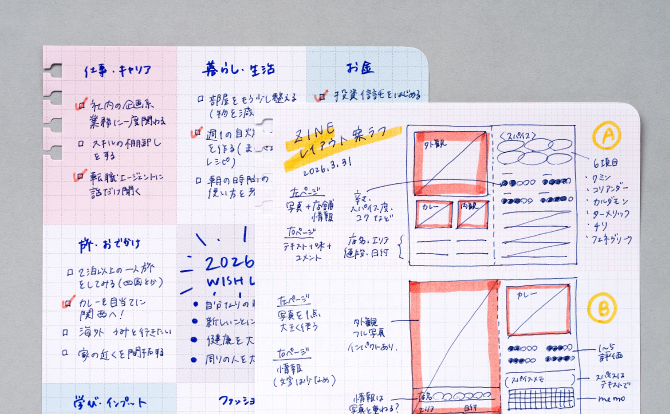 仕事・キャリア
社内の企画系
業務に一度関わる
スキルの棚卸し
をする
転職エージェントに
話だけ聞く
暮らし・生活
部屋をもう少し整える
(物を減
週1の自炊
を作る(ま
レシピ)
朝の時間の
使い方を
お金
投資信託をはじめる
旅・おでかけ
2泊以上の一人旅
をしてみる(四国とか)
カレーを目当てに
関西へ!
海外
行きたい
家の近くを開拓する
2026
WISH L
自分なりの
新しいことに
健康を大
周りの人を大
学び・インプット
ファッショ
ZINE
レイアウト案ラフ
2026.3.31
左ページ
写真+店舗
情報
右ページ
テキスト+味+
コメント
外観
カレー
内観
辛さ、
スパイス度、
コクなど
店名、エリア
最寄り、日付
〈スパイス〉
A
6項目
・クミン
・コリアンダー
・カルダモン
・ターメリック
・チリ
・フェヌグリーク
左ページ
写真を1点、
大きく使う
右ページ
情報
(文字は少なめ)
外観
フル写真
インパクトあり。
情報は
写真と重ねる?
店名
エリア
日付
カレー
B
1〜5
評価
(スパイスメモ)
スパイスは
テキストで
memo